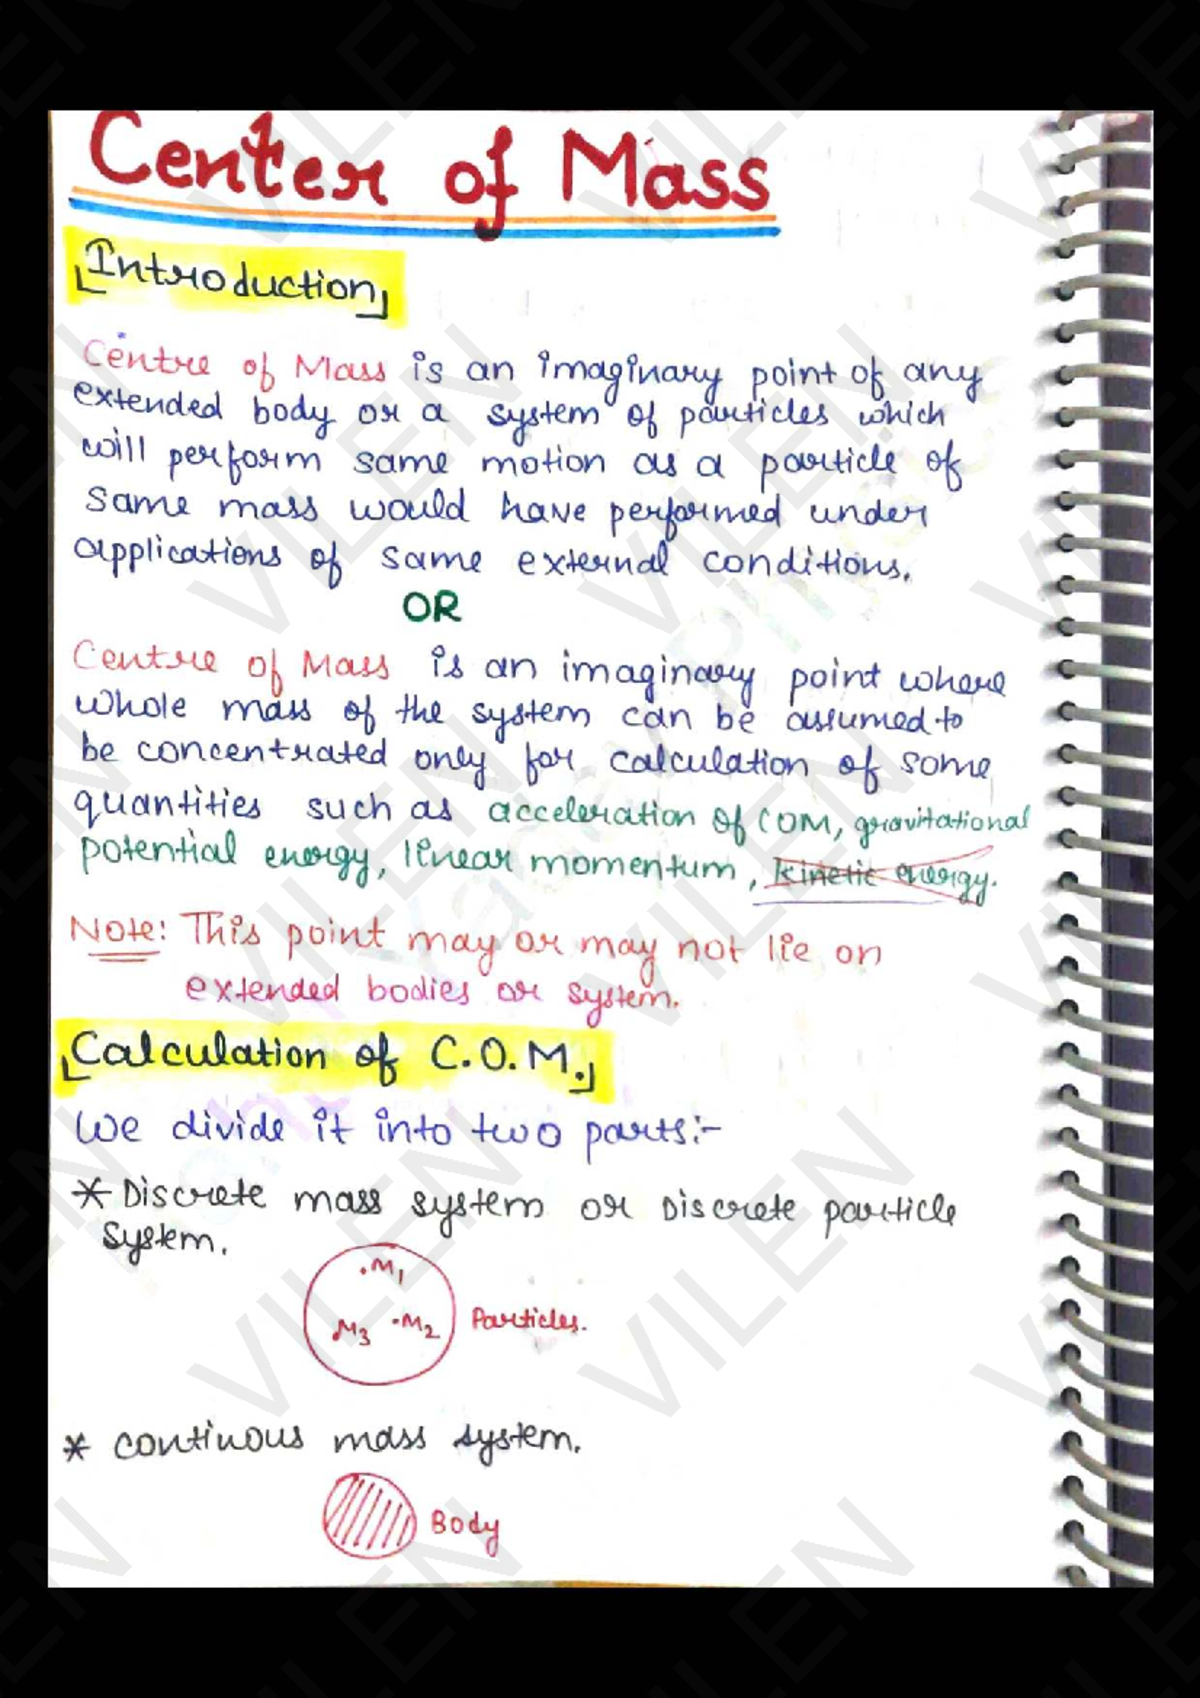 Center of Mass
Introduction
Centre of Mass is an imaginary point of any
extended body or a system of particles which
will perform same motion as a particle of
same mass would have performed under
applications of same external conditions.
OR
Centre of Mass is an imaginary point where
whole mass of the system can be assumed to
be concentrated only for calculation of some
quantities such as acceleration of COM, gravitational
potential energy, linear momentum, kinetic energy.
Note: This point may or may not lie on
extended bodies or system.
Calculation of C.O.M.
We divide it into two parts:-
* Discrete mass system or Discrete particle
system.
.M1
M3 .M2 Particles.
* continuous mass system.
Body
VILEN